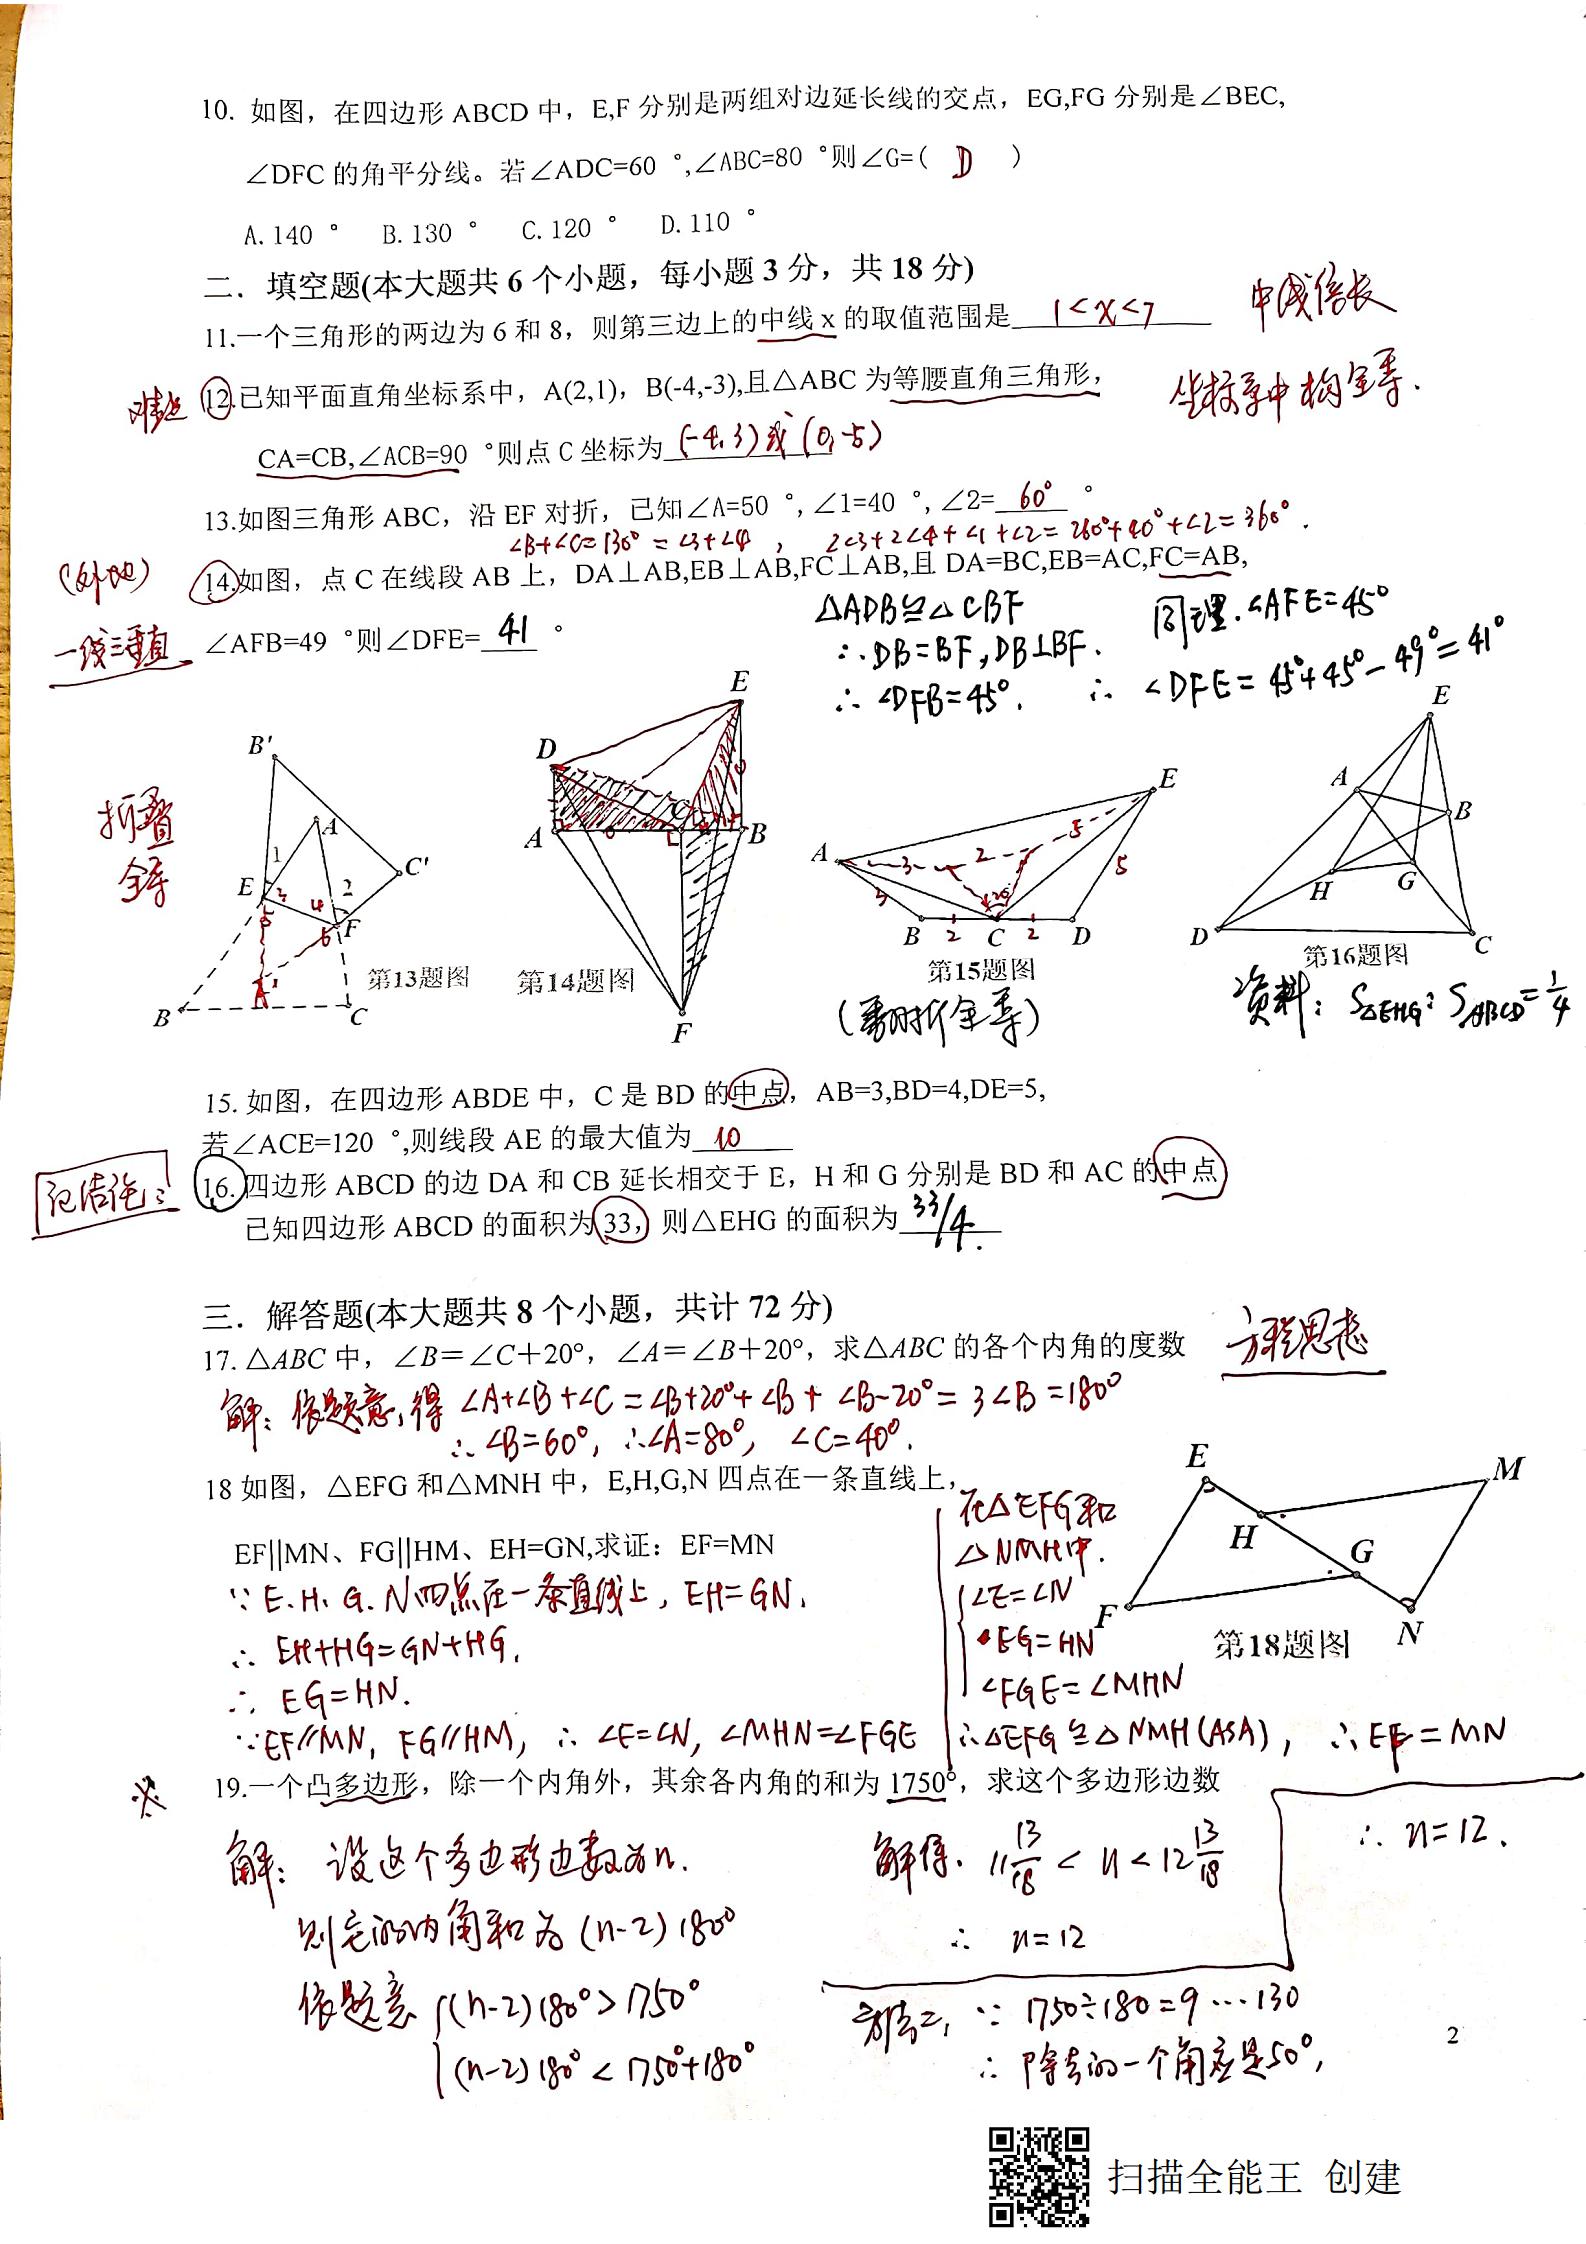 10. 如图，在四边形 ABCD 中，E,F 分别是两组对边延长线的交点，EG,FG 分别是∠BEC,
∠DFC 的角平分线。若∠ADC=60 °,∠ABC=80 °则∠G=( D )
A.140 ° B.130 ° C.120 ° D.110 °
二．填空题(本大题共 6 个小题，每小题 3 分，共 18 分)
11.一个三角形的两边为 6 和 8，则第三边上的中线 x 的取值范围是 1<x<7
中线倍长
难点
12.已知平面直角坐标系中，A(2,1)，B(-4,-3),且△ABC 为等腰直角三角形，
坐标系中构全等.
CA=CB,∠ACB=90 °则点 C 坐标为 (-4,3)或(0,-5)
13.如图三角形 ABC，沿 EF 对折，已知∠A=50 °, ∠1=40 °, ∠2= 60° °
∠B+∠C=130°=∠3+∠4， 2∠3+2∠4+∠1+∠2=260°+40°+∠2=360°.
14.如图，点 C 在线段 AB 上，DA⊥AB,EB⊥AB,FC⊥AB,且 DA=BC,EB=AC,FC=AB,
∠AFB=49 °则∠DFE= 41 °
一线三垂直
△ADB≌△CBF
∴DB=BF,DB⊥BF.
∴∠DFB=45°.
同理.∠AFE=45°
∴ ∠DFE=45°+45°-49°=41°
折叠
全等
B' A 1 C' E 3 2 4 F B C
第13题图
E D A C B F
第14题图
A E 3 2 5 3 5 120° B 2 C 2 D
第15题图
(翻折全等)
E A B H G D C
第16题图
资料：S△EHG：SABCD=1/4
15. 如图，在四边形 ABDE 中，C 是 BD 的中点，AB=3,BD=4,DE=5,
若∠ACE=120 °,则线段 AE 的最大值为 10
记结论：
16. 四边形 ABCD 的边 DA 和 CB 延长相交于 E，H 和 G 分别是 BD 和 AC 的中点
已知四边形 ABCD 的面积为 33，则△EHG 的面积为 33/4.
三．解答题(本大题共 8 个小题，共计 72 分)
17. △ABC 中，∠B＝∠C＋20°，∠A＝∠B＋20°，求△ABC 的各个内角的度数
方程思想
解：依题意，得 ∠A+∠B+∠C=∠B+20°+∠B+∠B-20°=3∠B=180°
∴∠B=60°，∴∠A=80°，∠C=40°.
18 如图，△EFG 和△MNH 中，E,H,G,N 四点在一条直线上，
EF||MN、FG||HM、EH=GN,求证：EF=MN
∵E.H.G.N四点在一条直线上，EH=GN.
∴ EH+HG=GN+HG.
∴ EG=HN.
∵EF//MN, FG//HM, ∴ ∠E=∠N, ∠MHN=∠FGE
在△EFG和
△NMH中.
∠E=∠N
EG=HN
∠FGE=∠MHN
∴△EFG≌△NMH(ASA)， ∴EF=MN
E M H G F N
第18题图
19.一个凸多边形，除一个内角外，其余各内角的和为 1750°，求这个多边形边数
解： 设这个多边形边数为n.
则它的内角和为(n-2)180°
依题意 (n-2)180°>1750°
(n-2)180°<1750°+180°
解得. 11 13/18 < n < 12 13/18
∴ n=12
方法二, ∵ 1750÷180=9…130
∴ 除去的一个角应是50°,
∴ n=12.
2
扫描全能王 创建